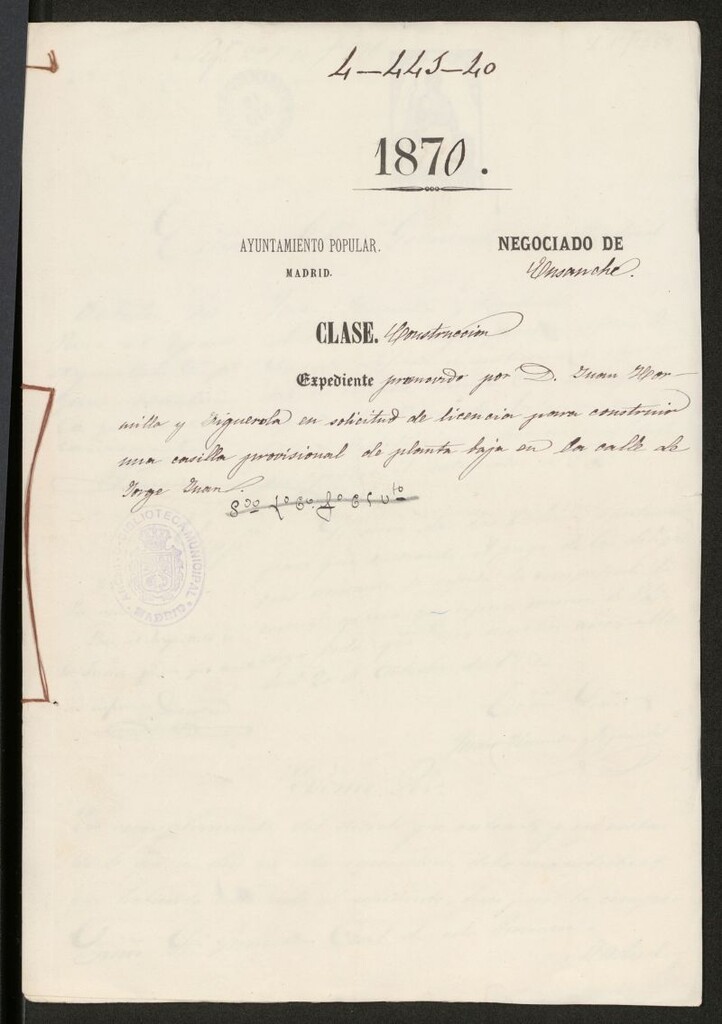 4-445-40
1870.
AYUNTAMIENTO POPULAR.
MADRID.
NEGOCIADO DE
Ensanche.
CLASE. Construccion
Expediente promovido por D. Juan
y Figuerola en solicitud de licencia para construir
una casilla provisional de planta baja en la calle de
Jorge Juan.
BIBLIOTECA MUNICIPAL
MADRID